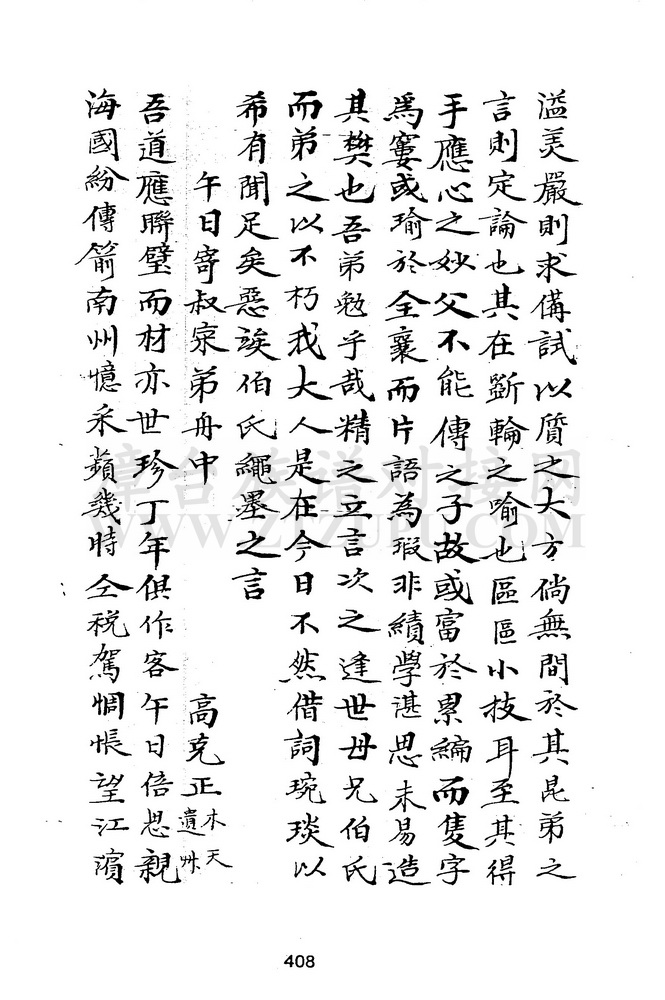 溢美嚴則求備試以質之大方倘無間於其昆弟之
言則定論也其在斲輪之喻也區區小技耳至其得
手應心之妙父不能傳之子故或富於累編而隻字
為窶或瑜於全襄而片語為瑕非績學湛思未易造
其樊也吾弟勉乎哉精之立言次之逢世毋兄伯氏
而弟之以不朽我大人是在今日不然借詞琬琰以
希有聞足矣惡誒伯氏繩墨之言
午日寄叔宗弟舟中 高克正 木天遺艸
吾道應聯璧而材亦世珍丁年俱作客午日倍思親
海國紛傳箭南州憶采蘋幾時仝稅駕惆悵望江濱
漳台族谱对接网
WWW.ZTZUPU.COM
408